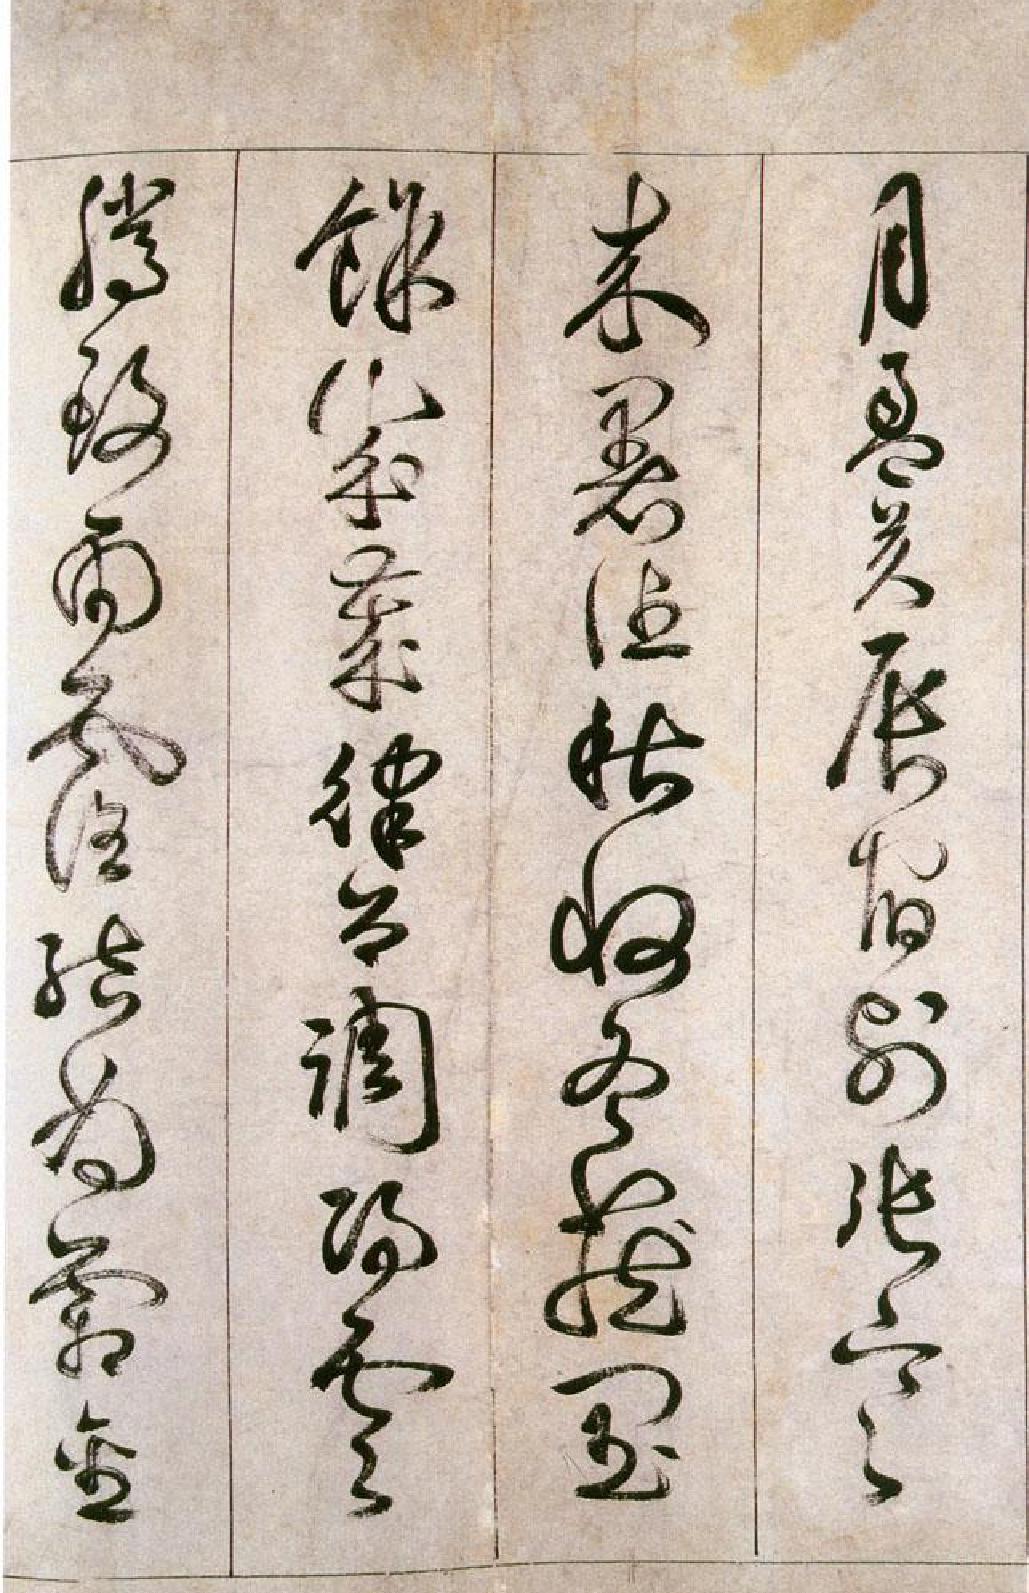 月盈昃辰宿列張寒
來暑往秋收冬藏閏
餘成歲律呂調陽雲
騰致雨露結為霜金